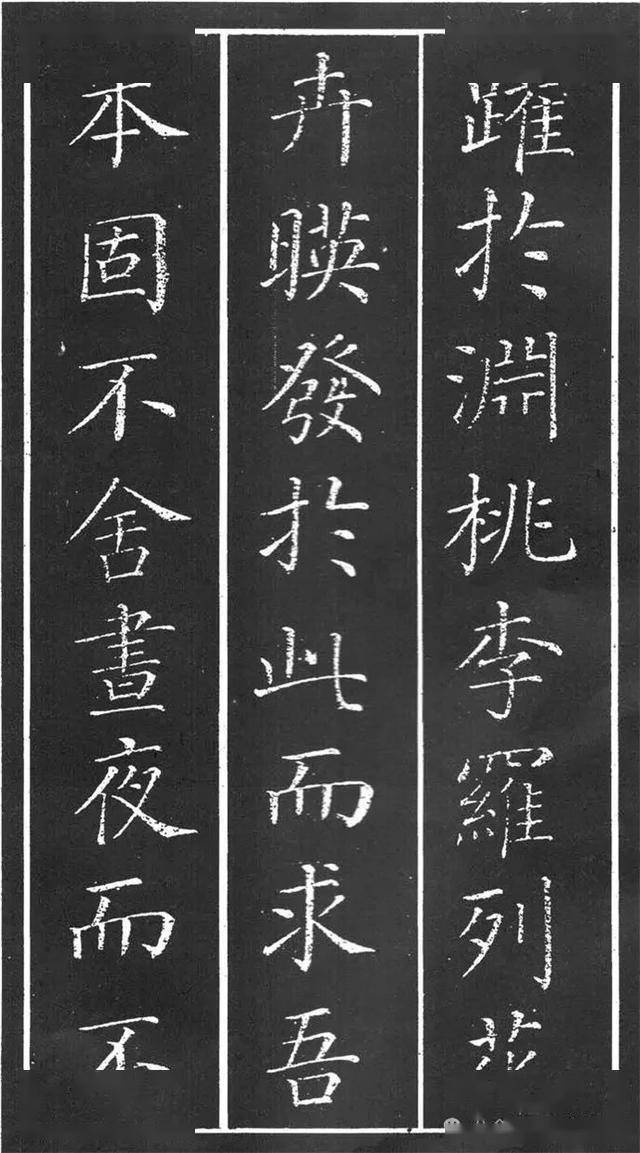 躍於淵桃李羅列花
卉暎發於此而求吾
本固不舍晝夜而不